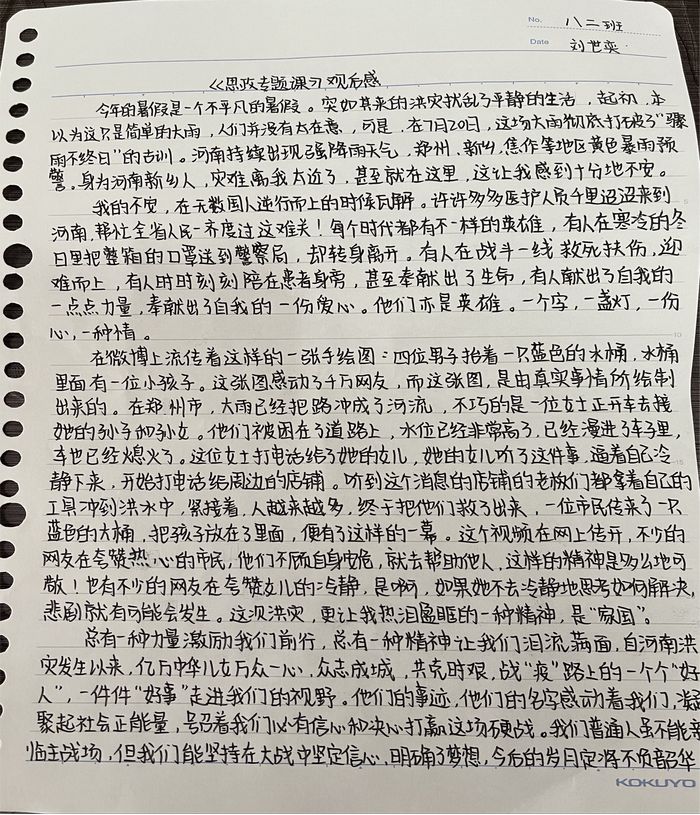 No. 八二班
Date 刘世奕
《思政专题课》观后感
今年的暑假是一个不平凡的暑假。突如其来的洪灾扰乱了平静的生活，起初，本
以为这只是简单的大雨，人们并没有太在意，可是，在7月20日，这场大雨彻底打破了"骤
雨不终日"的古训。河南持续出现强降雨天气，郑州、新乡、焦作等地区黄色暴雨预
警。身为河南新乡人，灾难离我太近了，甚至就在这里，这让我感到十分地不安。
我的不安，在无数国人逆行而上的时候瓦解。许许多多医护人员千里迢迢来到
河南，帮社全省人民一齐度过这难关！每个时代都有不一样的英雄，有人在寒冷的冬
日里把整箱的口罩送到警察局，却转身离开。有人在战斗一线救死扶伤，迎
难而上，有人时时刻刻陪在患者身旁，甚至奉献出了生命，有人献出了自我的
一点点力量，奉献出了自我的一份爱心。他们亦是英雄。一个字，一盏灯，一份
心，一种情。
在微博上流传着这样的一张手绘图：四位男子抬着一只蓝色的水桶，水桶
里面有一位小孩子。这张图感动了千万网友，而这张图，是由真实事情所绘制
出来的。在郑州市，大雨已经把路冲成了河流，不巧的是一位女士正开车去接
她的孙子和孙女。他们被困在了道路上，水位已经非常高了，已经漫进了车子里，
车也已经熄火了。这位女士打电话给了她的女儿，她的女儿听了这件事，逼着自己冷
静下来，开始打电话给周边的店铺。听到这个消息的店铺的老板们都拿着自己的
工具冲到洪水中，紧接着，人越来越多，终于把他们救了出来，一位市民传来了一只
蓝色的大桶，把孩子放在了里面，便有了这样的一幕。这个视频在网上传开，不少的
网友在夸赞热心的市民，他们不顾自身安危，就去帮助他人，这样的精神是多么地可
敬！也有不少的网友在夸赞女儿的冷静，是啊，如果她不去冷静地思考如何解决，
悲剧就有可能会发生。这次洪灾，更让我热泪盈眶的一种精神，是"家国"。
总有一种力量激励我们前行，总有一种精神让我们泪流满面，自河南洪
灾发生以来，亿万中华儿女万众一心，众志成城，共克时艰，战"疫"路上的一个个"好
人"，一件件"好事"走进我们的视野。他们的事迹，他们的名字感动着我们，凝
聚起社会正能量，号召着我们以有信心和决心打赢这场硬战。我们普通人虽不能亲
临主战场，但我们能坚持在大战中坚定信心，明确了梦想，今后的岁月定将不负韶华
KOKUYO